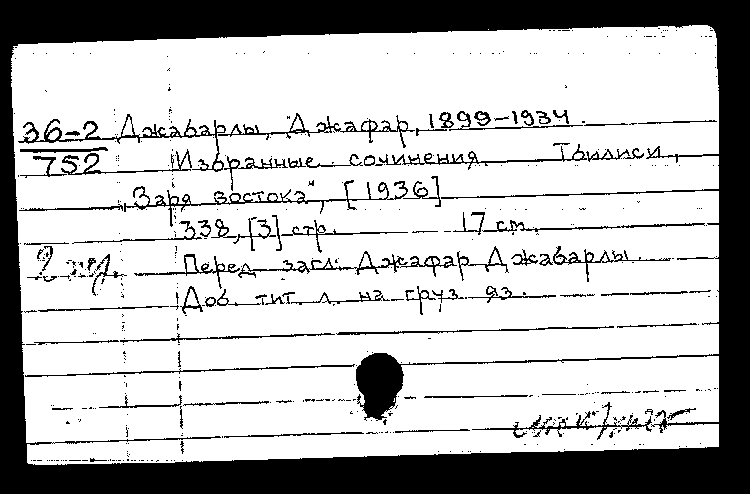 36-2 Джабарлы, Джафар, 1899-1934.
752 Избранные сочинения. Тбилиси,
„Заря востока", [1936]
338, [3] стр. 17 cm.
2 экз. Перед загл: Джафар Джабарлы.
Доб. тит. л. на груз яз.